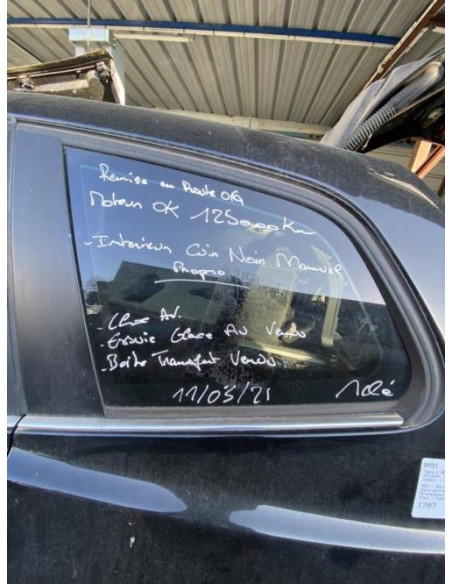 Remise en Route OK
Moteur OK 125000 Km
- Interieur Cuir Noir Manuel
Propre
- Choc AV.
- Essuie Glace AV Vendu
- Boite Transfert Vendu
11/03/21
1787